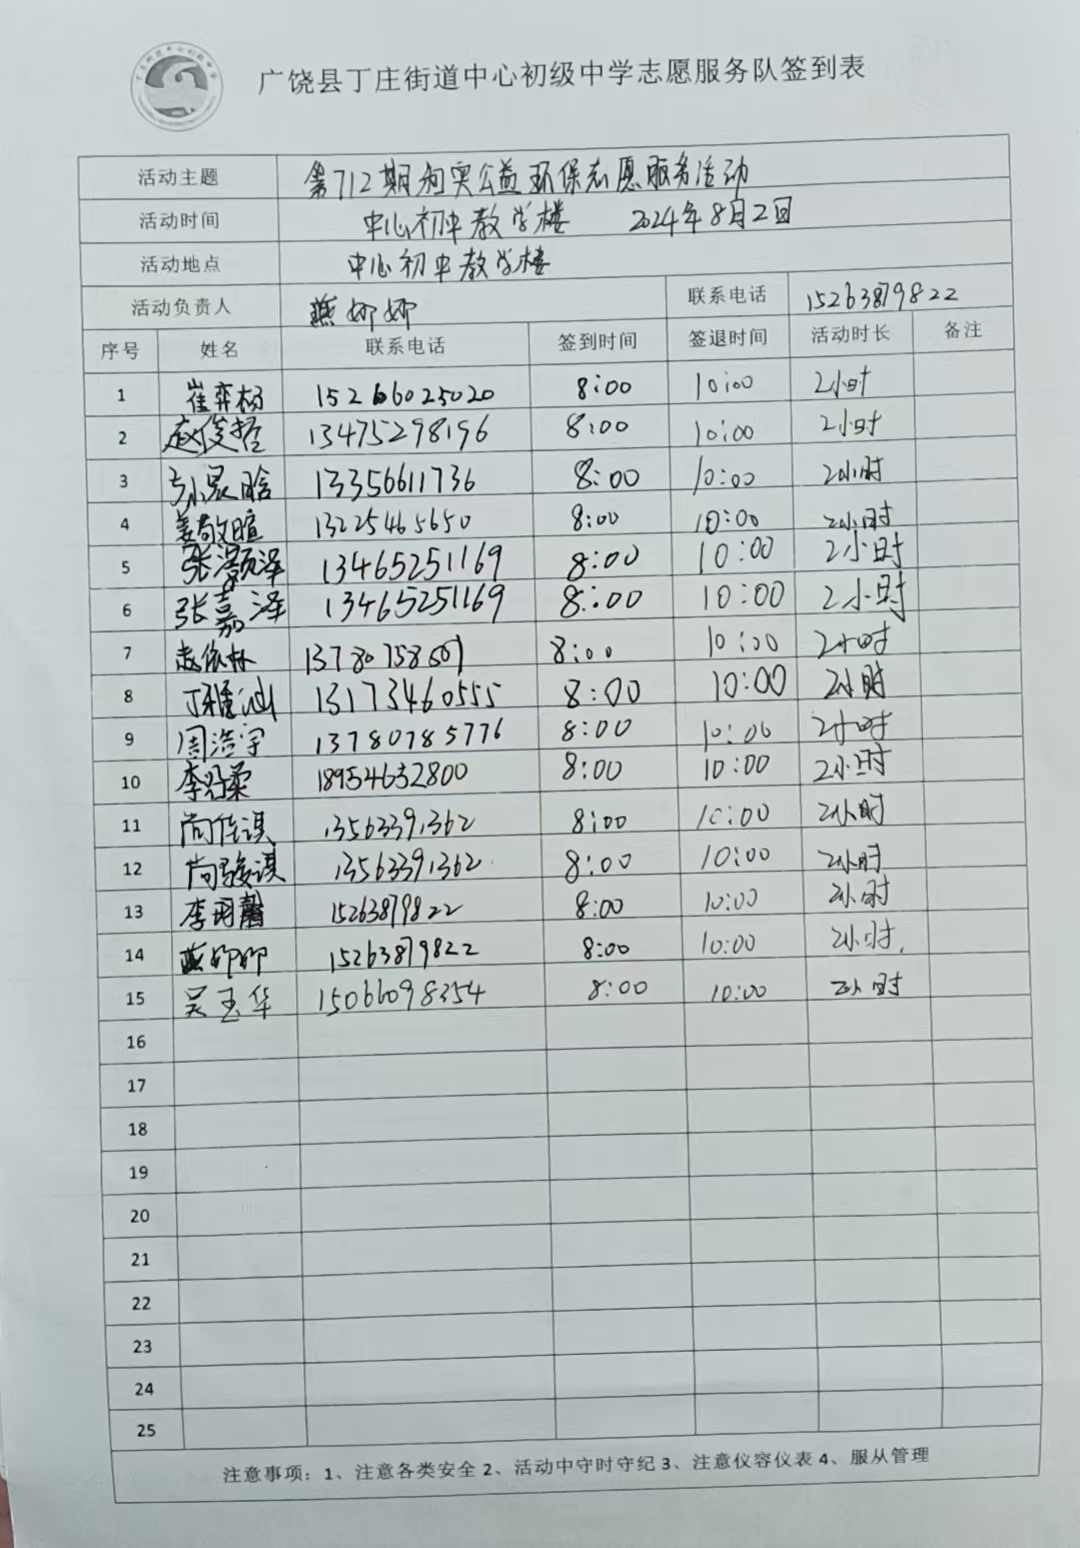 广饶县丁庄街道中心初级中学志愿服务队签到表
活动主题 第712期 公益环保志愿服务活动
活动时间 中心初中教学楼 2024年8月2日
活动地点 中心初中教学楼
活动负责人 燕娜娜 联系电话 15263879822
序号 姓名 联系电话 签到时间 签退时间 活动时长 备注
1 崔弈杨 15266025020 8:00 10:00 2小时
2 赵俊 13475298196 8:00 10:00 2小时
3 13356611736 8:00 10:00 2小时
4 姜敬暄 13225465650 8:00 10:00 2小时
5 张灏泽 13465251169 8:00 10:00 2小时
6 张嘉泽 13465251169 8:00 10:00 2小时
7 赵依林 8:00 10:00 2小时
8 丁雅汕 13173460555 8:00 10:00 2小时
9 周浩宇 13780785776 8:00 10:00 2小时
10 李柔 18954632800 8:00 10:00 2小时
11 尚佳淇 13563391362 8:00 10:00 2小时
12 尚骏淇 13563391362 8:00 10:00 2小时
13 李玥 15263879822 8:00 10:00 2小时
14 燕娜娜 15263879822 8:00 10:00 2小时
15 吴玉华 15066098354 8:00 10:00 2小时
16
17
18
19
20
21
22
23
24
25
注意事项：1、注意各类安全 2、活动中守时守纪 3、注意仪容仪表 4、服从管理